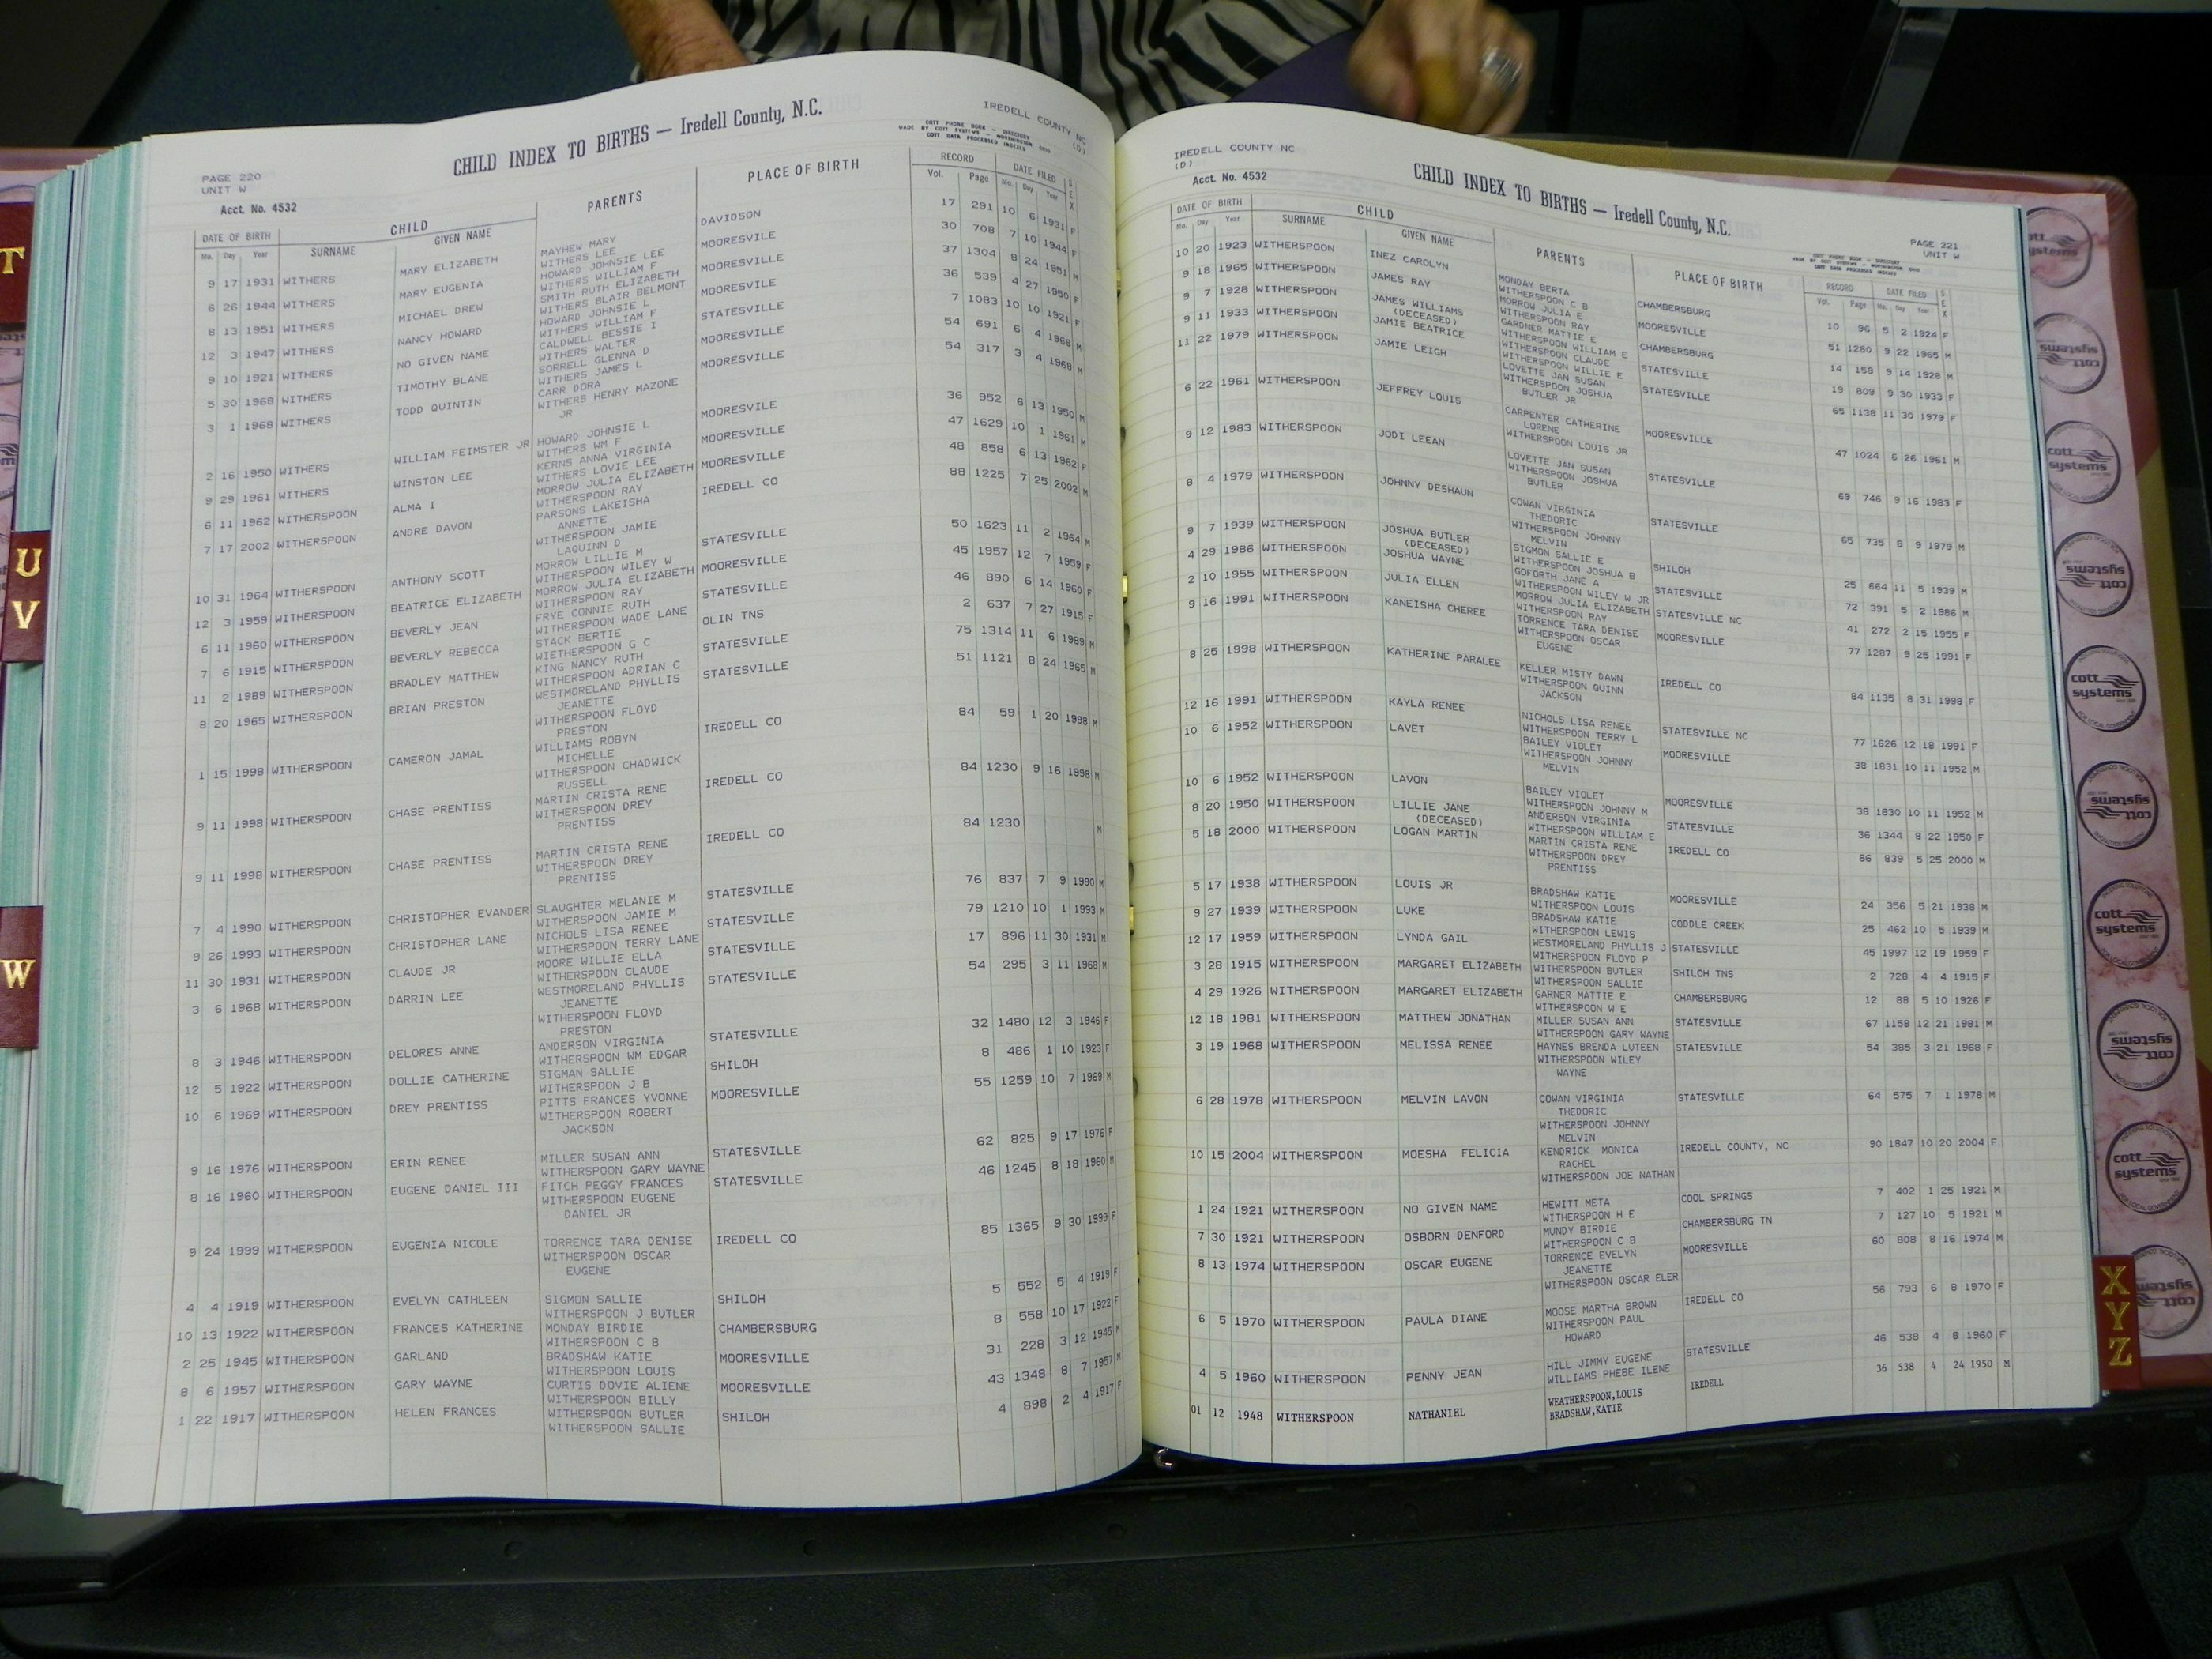 CHILD INDEX TO BIRTHS — Iredell County, N.C.
IREDELL COUNTY NC
(D)
COTT PHONE BOOK - DIRECTORY
MADE BY COTT SYSTEMS - WORTHINGTON OHIO
COTT DATA PROCESSED INDEXES
PAGE 220
UNIT W
Acct. No. 4532
DATE OF BIRTH CHILD PARENTS PLACE OF BIRTH RECORD DATE FILED SEX
Mo. Day Year SURNAME GIVEN NAME Vol. Page Mo. Day Year
9 17 1931 WITHERS MARY ELIZABETH MAYHEW MARY DAVIDSON 17 291 10 6 1931 F
WITHERS LEE
6 26 1944 WITHERS MARY EUGENIA HOWARD JOHNSIE LEE MOORESVILE 30 708 7 10 1944 F
WITHERS WILLIAM F
8 13 1951 WITHERS MICHAEL DREW SMITH RUTH ELIZABETH MOORESVILLE 37 1304 8 24 1951 M
WITHERS BLAIR BELMONT
12 3 1947 WITHERS NANCY HOWARD HOWARD JOHNSIE L MOORESVILE 36 539 4 27 1950 F
WITHERS WILLIAM F
9 10 1921 WITHERS NO GIVEN NAME CALDWELL BESSIE I STATESVILLE 7 1083 10 10 1921 F
WITHERS WALTER
5 30 1968 WITHERS TIMOTHY BLANE SORRELL GLENNA D MOORESVILLE 54 691 6 4 1968 M
WITHERS JAMES L
3 1 1968 WITHERS TODD QUINTIN CARR DORA MOORESVILLE 54 317 3 4 1968 M
WITHERS HENRY MAZONE
JR
2 16 1950 WITHERS WILLIAM FEIMSTER JR HOWARD JOHNSIE L MOORESVILE 36 952 6 13 1950 M
WITHERS WM F
9 29 1961 WITHERS WINSTON LEE KERNS ANNA VIRGINIA MOORESVILLE 47 1629 10 1 1961 M
WITHERS LOVIE LEE
6 11 1962 WITHERSPOON ALMA I MORROW JULIA ELIZABETH MOORESVILLE 48 858 6 13 1962 F
WITHERSPOON RAY
7 17 2002 WITHERSPOON ANDRE DAVON PARSONS LAKEISHA IREDELL CO 88 1225 7 25 2002 M
ANNETTE
WITHERSPOON JAMIE
LAQUINN D
10 31 1964 WITHERSPOON ANTHONY SCOTT MORROW LILLIE M STATESVILLE 50 1623 11 2 1964 M
WITHERSPOON WILEY W
12 3 1959 WITHERSPOON BEATRICE ELIZABETH MORROW JULIA ELIZABETH MOORESVILLE 45 1957 12 7 1959 F
WITHERSPOON RAY
6 11 1960 WITHERSPOON BEVERLY JEAN FRYE CONNIE RUTH STATESVILLE 46 890 6 14 1960 F
WITHERSPOON WADE LANE
7 6 1915 WITHERSPOON BEVERLY REBECCA STACK BERTIE OLIN TNS 2 637 7 27 1915 F
WIETHERSPOON G C
11 2 1989 WITHERSPOON BRADLEY MATTHEW KING NANCY RUTH STATESVILLE 75 1314 11 6 1989 M
WITHERSPOON ADRIAN C
8 20 1965 WITHERSPOON BRIAN PRESTON WESTMORELAND PHYLLIS STATESVILLE 51 1121 8 24 1965 M
JEANETTE
WITHERSPOON FLOYD
PRESTON
1 15 1998 WITHERSPOON CAMERON JAMAL WILLIAMS ROBYN IREDELL CO 84 59 1 20 1998 M
MICHELLE
WITHERSPOON CHADWICK
RUSSELL
9 11 1998 WITHERSPOON CHASE PRENTISS MARTIN CRISTA RENE IREDELL CO 84 1230 9 16 1998 M
WITHERSPOON DREY
PRENTISS
9 11 1998 WITHERSPOON CHASE PRENTISS MARTIN CRISTA RENE IREDELL CO 84 1230 M
WITHERSPOON DREY
PRENTISS
7 4 1990 WITHERSPOON CHRISTOPHER EVANDER SLAUGHTER MELANIE M STATESVILLE 76 837 7 9 1990 M
WITHERSPOON JAMIE M
9 26 1993 WITHERSPOON CHRISTOPHER LANE NICHOLS LISA RENEE STATESVILLE 79 1210 10 1 1993 M
WITHERSPOON TERRY LANE
11 30 1931 WITHERSPOON CLAUDE JR MOORE WILLIE ELLA STATESVILLE 17 896 11 30 1931 M
WITHERSPOON CLAUDE
3 6 1968 WITHERSPOON DARRIN LEE WESTMORELAND PHYLLIS STATESVILLE 54 295 3 11 1968 M
JEANETTE
WITHERSPOON FLOYD
PRESTON
8 3 1946 WITHERSPOON DELORES ANNE ANDERSON VIRGINIA STATESVILLE 32 1480 12 3 1946 F
WITHERSPOON WM EDGAR
12 5 1922 WITHERSPOON DOLLIE CATHERINE SIGMAN SALLIE SHILOH 8 486 1 10 1923 F
WITHERSPOON J B
10 6 1969 WITHERSPOON DREY PRENTISS PITTS FRANCES YVONNE MOORESVILLE 55 1259 10 7 1969 M
WITHERSPOON ROBERT
JACKSON
9 16 1976 WITHERSPOON ERIN RENEE MILLER SUSAN ANN STATESVILLE 62 825 9 17 1976 F
WITHERSPOON GARY WAYNE
8 16 1960 WITHERSPOON EUGENE DANIEL III FITCH PEGGY FRANCES STATESVILLE 46 1245 8 18 1960 M
WITHERSPOON EUGENE
DANIEL JR
9 24 1999 WITHERSPOON EUGENIA NICOLE TORRENCE TARA DENISE IREDELL CO 85 1365 9 30 1999 F
WITHERSPOON OSCAR
EUGENE
4 4 1919 WITHERSPOON EVELYN CATHLEEN SIGMON SALLIE SHILOH 5 552 5 4 1919 F
WITHERSPOON J BUTLER
10 13 1922 WITHERSPOON FRANCES KATHERINE MONDAY BIRDIE CHAMBERSBURG 8 558 10 17 1922 F
WITHERSPOON C B
2 25 1945 WITHERSPOON GARLAND BRADSHAW KATIE MOORESVILLE 31 228 3 12 1945 M
WITHERSPOON LOUIS
8 6 1957 WITHERSPOON GARY WAYNE CURTIS DOVIE ALIENE MOORESVILLE 43 1348 8 7 1957 M
WITHERSPOON BILLY
1 22 1917 WITHERSPOON HELEN FRANCES WITHERSPOON BUTLER SHILOH 4 898 2 4 1917 F
WITHERSPOON SALLIE
IREDELL COUNTY NC
(D)
Acct. No. 4532
CHILD INDEX TO BIRTHS — Iredell County, N.C.
PAGE 221
UNIT W
DATE OF BIRTH CHILD PARENTS PLACE OF BIRTH RECORD DATE FILED SEX
Mo. Day Year SURNAME GIVEN NAME Vol. Page Mo. Day Year
10 20 1923 WITHERSPOON INEZ CAROLYN MONDAY BERTA CHAMBERSBURG 10 96 5 2 1924 F
WITHERSPOON C B
9 18 1965 WITHERSPOON JAMES RAY MORROW JULIA E MOORESVILLE 51 1280 9 22 1965 M
WITHERSPOON RAY
9 7 1928 WITHERSPOON JAMES WILLIAMS GARDNER MATTIE E CHAMBERSBURG 14 158 9 14 1928 M
(DECEASED) WITHERSPOON WILLIAM E
9 11 1933 WITHERSPOON JAMIE BEATRICE WITHERSPOON CLAUDE STATESVILLE 19 809 9 30 1933 F
WITHERSPOON WILLIE E
11 22 1979 WITHERSPOON JAMIE LEIGH LOVETTE JAN SUSAN STATESVILLE 65 1138 11 30 1979 F
WITHERSPOON JOSHUA
BUTLER JR
6 22 1961 WITHERSPOON JEFFREY LOUIS CARPENTER CATHERINE MOORESVILLE 47 1024 6 26 1961 M
LORENE
WITHERSPOON LOUIS JR
9 12 1983 WITHERSPOON JODI LEEAN LOVETTE JAN SUSAN STATESVILLE 69 746 9 16 1983 F
WITHERSPOON JOSHUA
BUTLER
8 4 1979 WITHERSPOON JOHNNY DESHAUN COWAN VIRGINIA STATESVILLE 65 735 8 9 1979 M
THEDORIC
WITHERSPOON JOHNNY
MELVIN
9 7 1939 WITHERSPOON JOSHUA BUTLER SIGMON SALLIE E SHILOH 25 664 11 5 1939 M
(DECEASED) WITHERSPOON JOSHUA B
4 29 1986 WITHERSPOON JOSHUA WAYNE GOFORTH JANE A STATESVILLE 72 391 5 2 1986 M
WITHERSPOON WILEY W JR
2 10 1955 WITHERSPOON JULIA ELLEN MORROW JULIA ELIZABETH STATESVILLE NC 41 272 2 15 1955 F
WITHERSPOON RAY
9 16 1991 WITHERSPOON KANEISHA CHEREE TORRENCE TARA DENISE MOORESVILLE 77 1287 9 25 1991 F
WITHERSPOON OSCAR
EUGENE
8 25 1998 WITHERSPOON KATHERINE PARALEE KELLER MISTY DAWN IREDELL CO 84 1135 8 31 1998 F
WITHERSPOON QUINN
JACKSON
12 16 1991 WITHERSPOON KAYLA RENEE NICHOLS LISA RENEE STATESVILLE NC 77 1626 12 18 1991 F
WITHERSPOON TERRY L
10 6 1952 WITHERSPOON LAVET BAILEY VIOLET MOORESVILLE 38 1831 10 11 1952 M
WITHERSPOON JOHNNY
MELVIN
10 6 1952 WITHERSPOON LAVON BAILEY VIOLET MOORESVILLE 38 1830 10 11 1952 M
WITHERSPOON JOHNNY M
8 20 1950 WITHERSPOON LILLIE JANE ANDERSON VIRGINIA STATESVILLE 36 1344 8 22 1950 F
(DECEASED) WITHERSPOON WILLIAM E
5 18 2000 WITHERSPOON LOGAN MARTIN MARTIN CRISTA RENE IREDELL CO 86 839 5 25 2000 M
WITHERSPOON DREY
PRENTISS
5 17 1938 WITHERSPOON LOUIS JR BRADSHAW KATIE MOORESVILLE 24 356 5 21 1938 M
WITHERSPOON LOUIS
9 27 1939 WITHERSPOON LUKE BRADSHAW KATIE CODDLE CREEK 25 462 10 5 1939 M
WITHERSPOON LEWIS
12 17 1959 WITHERSPOON LYNDA GAIL WESTMORELAND PHYLLIS J STATESVILLE 45 1997 12 19 1959 F
WITHERSPOON FLOYD P
3 28 1915 WITHERSPOON MARGARET ELIZABETH WITHERSPOON BUTLER SHILOH TNS 2 728 4 4 1915 F
WITHERSPOON SALLIE
4 29 1926 WITHERSPOON MARGARET ELIZABETH GARNER MATTIE E CHAMBERSBURG 12 88 5 10 1926 F
WITHERSPOON W E
12 18 1981 WITHERSPOON MATTHEW JONATHAN MILLER SUSAN ANN STATESVILLE 67 1158 12 21 1981 M
WITHERSPOON GARY WAYNE
3 19 1968 WITHERSPOON MELISSA RENEE HAYNES BRENDA LUTEEN STATESVILLE 54 385 3 21 1968 F
WITHERSPOON WILEY
WAYNE
6 28 1978 WITHERSPOON MELVIN LAVON COWAN VIRGINIA STATESVILLE 64 575 7 1 1978 M
THEDORIC
WITHERSPOON JOHNNY
MELVIN
10 15 2004 WITHERSPOON MOESHA FELICIA KENDRICK MONICA IREDELL COUNTY, NC 90 1847 10 20 2004 F
RACHEL
WITHERSPOON JOE NATHAN
1 24 1921 WITHERSPOON NO GIVEN NAME HEWITT META COOL SPRINGS 7 402 1 25 1921 M
WITHERSPOON H E
7 30 1921 WITHERSPOON OSBORN DENFORD MUNDY BIRDIE CHAMBERSBURG TN 7 127 10 5 1921 M
WITHERSPOON C B
8 13 1974 WITHERSPOON OSCAR EUGENE TORRENCE EVELYN MOORESVILLE 60 808 8 16 1974 M
JEANETTE
WITHERSPOON OSCAR ELER
6 5 1970 WITHERSPOON PAULA DIANE MOOSE MARTHA BROWN IREDELL CO 56 793 6 8 1970 F
WITHERSPOON PAUL
HOWARD
4 5 1960 WITHERSPOON PENNY JEAN HILL JIMMY EUGENE STATESVILLE 46 538 4 8 1960 F
WILLIAMS PHEBE ILENE
01 12 1948 WITHERSPOON NATHANIEL WEATHERSPOON,LOUIS IREDELL 36 538 4 24 1950 M
BRADSHAW,KATIE
T
U
V
W
X
Y
Z
cott
systems